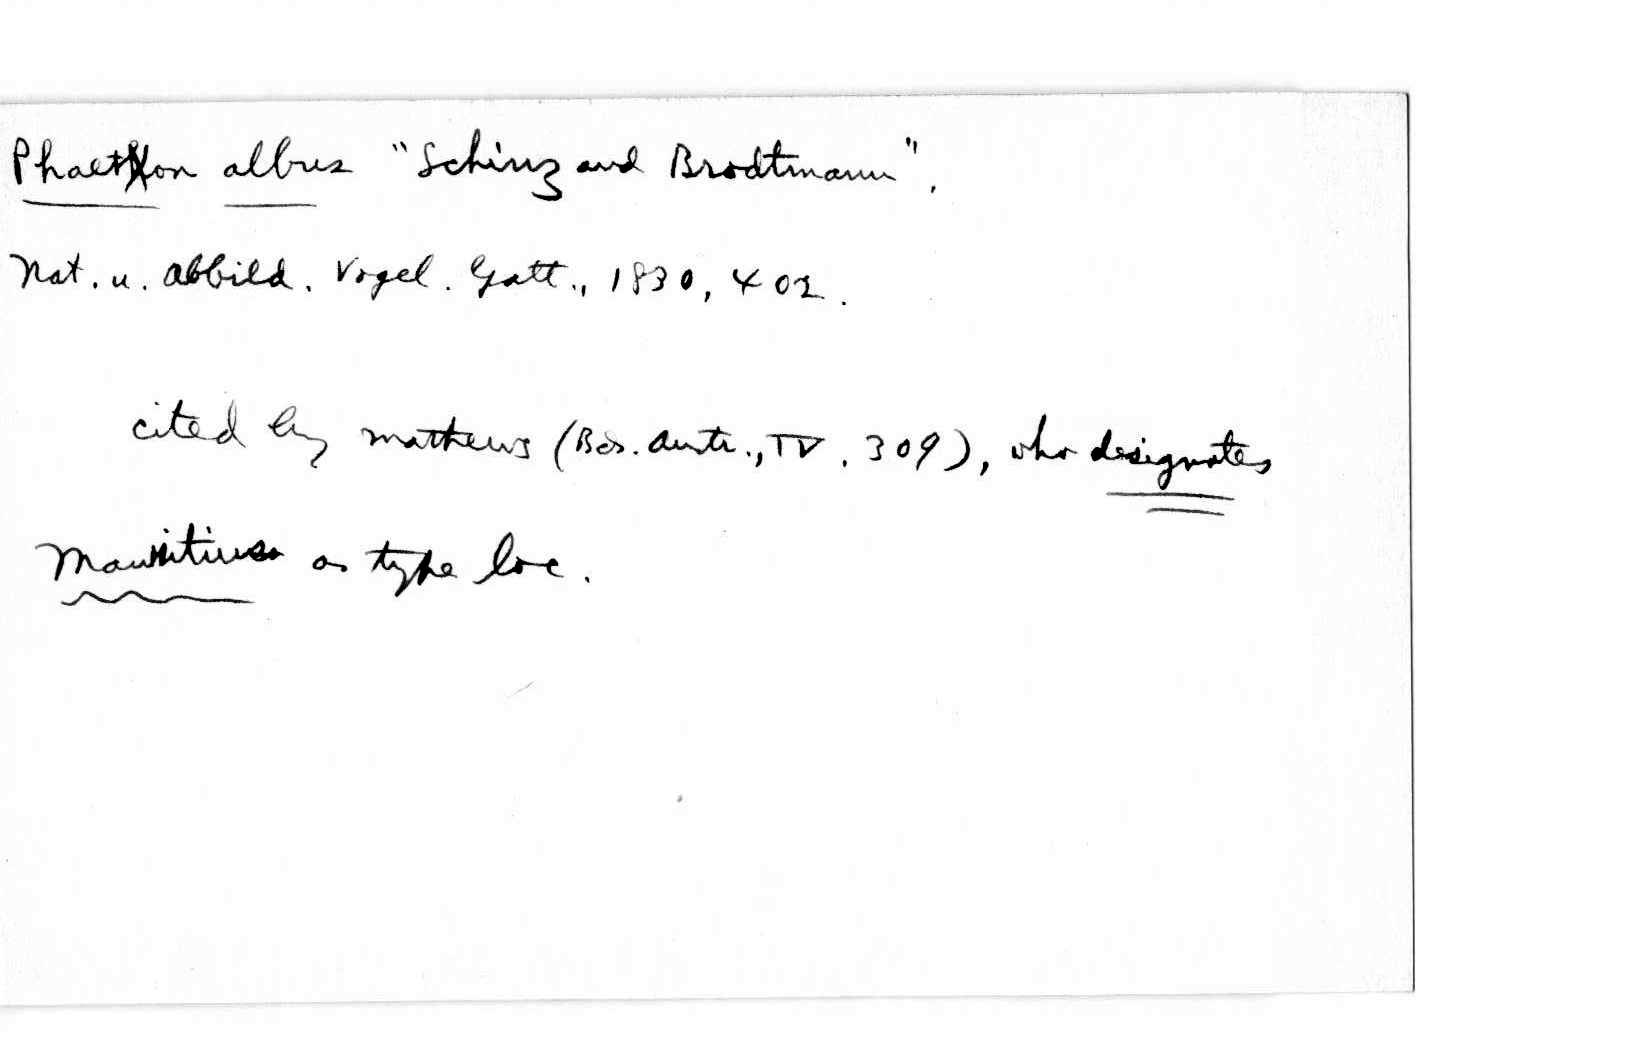 Phaeton albus "Schinz and Brodtmann",
Nat. u. Abbild. Vogel. Gatt., 1830, 402.
cited by Mathews (Bds. Austr., IV, 309), who designates
Mauritius as type loc.